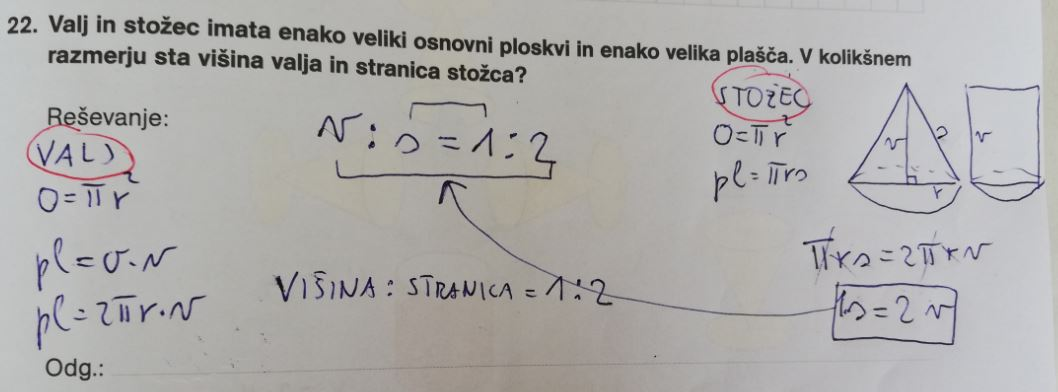 22. Valj in stožec imata enako veliki osnovni ploskvi in enako velika plašča. V kolikšnem
razmerju sta višina valja in stranica stožca?
Reševanje:
VALJ
O=πr²
pl=o·v
pl=2πr·v
v:s=1:2
VIŠINA: STRANICA=1:2
STOŽEC
O=πr²
pl=πrs
v
s
r
v
πrs=2πrv
1s=2v
Odg.: